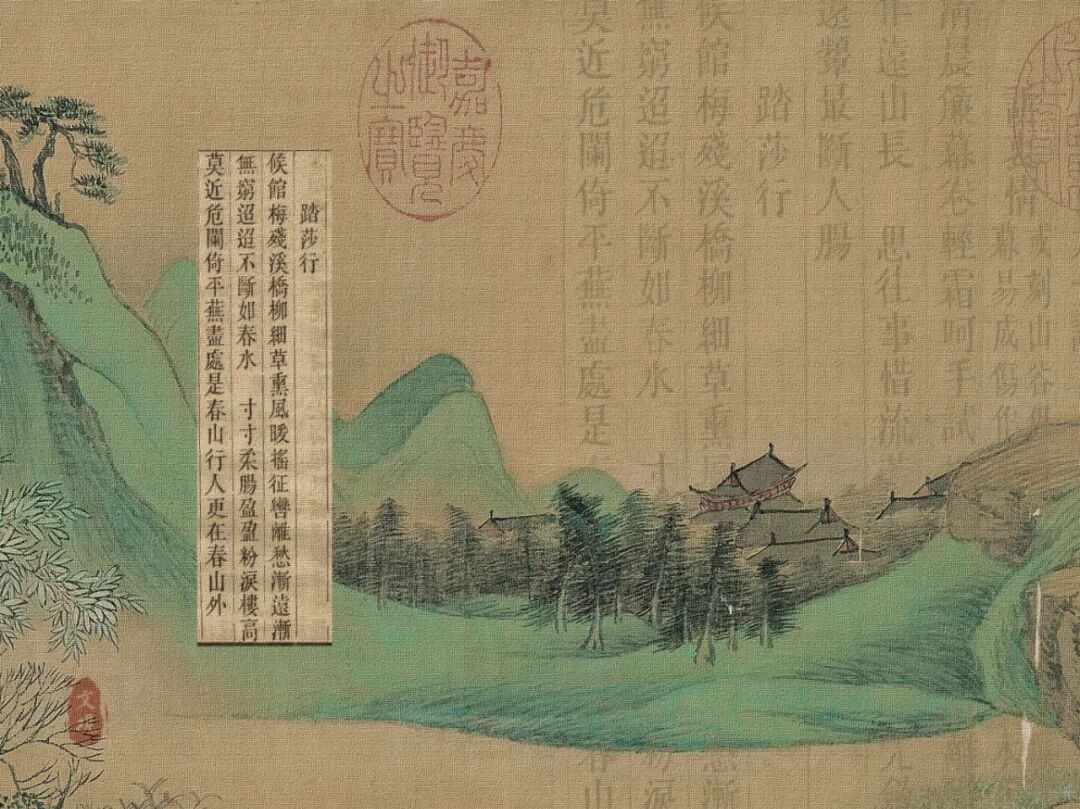 訴衷情
清晨簾幕卷輕霜呵手試
作遠山長 思往事惜流
遠顰最斷人腸
踏莎行
候館梅殘溪橋柳細草熏風
無窮迢迢不斷如春水 寸
莫近危闌倚平蕪盡處是
嘉慶
御覽
之寶
踏莎行
候館梅殘溪橋柳細草熏風暖搖征轡離愁漸遠漸
無窮迢迢不斷如春水 寸寸柔腸盈盈粉淚樓高
莫近危闌倚平蕪盡處是春山行人更在春山外